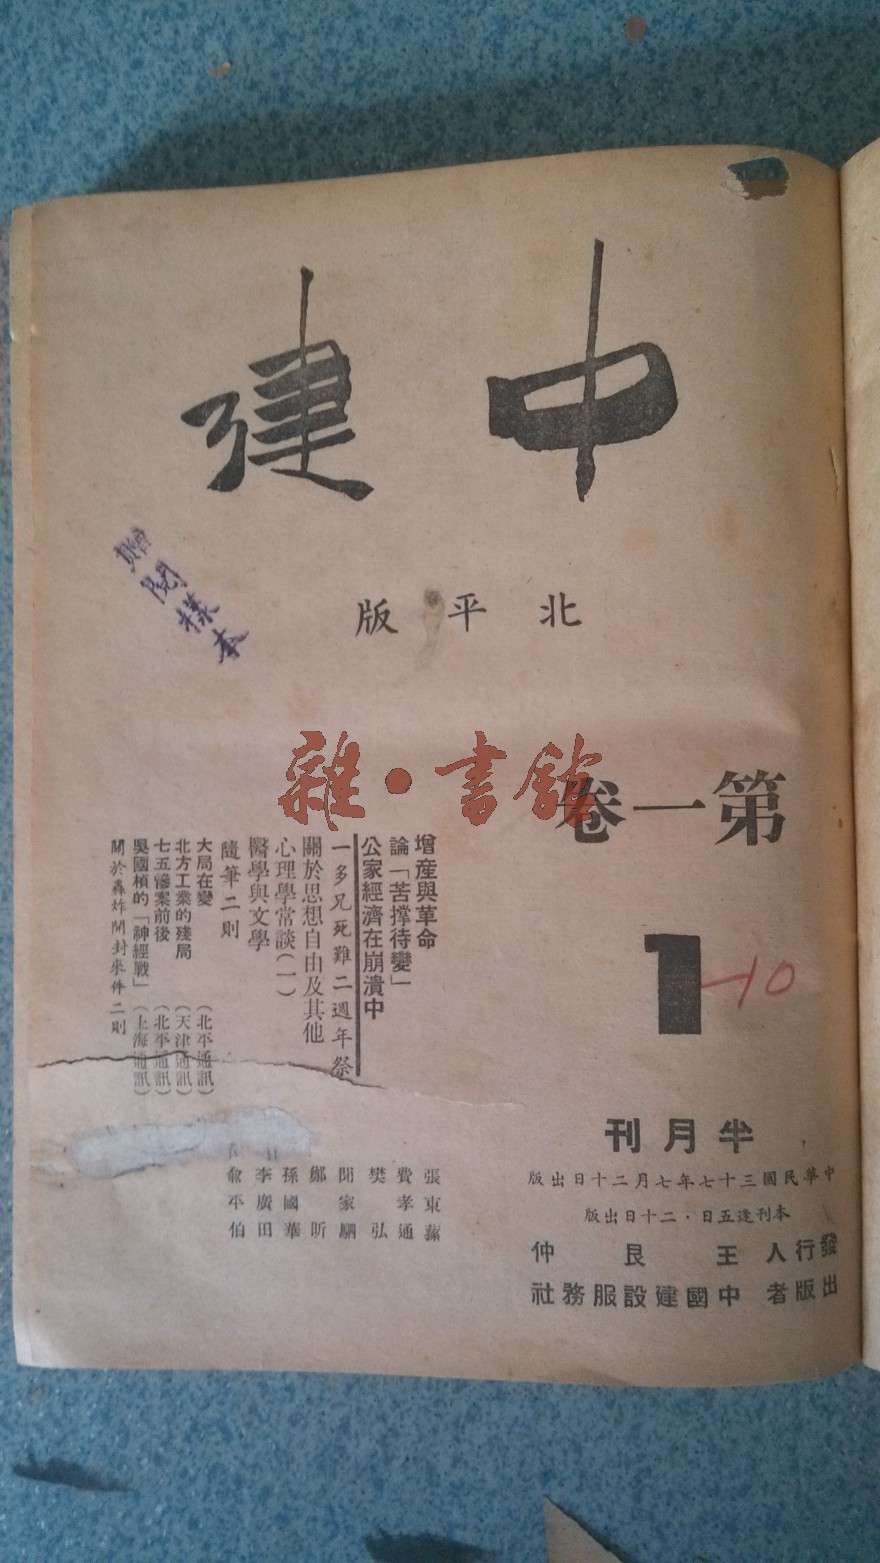 中建
北平版
贈閱樣本
雜·書館
第一卷
1
-10
半月刊
中華民國三十七年七月二十日出版
本刊逢五日·二十日出版
發行人 王艮仲
出版者 中國建設服務社
增產與革命
論「苦撑待變」
公家經濟在崩潰中
一多兄死難二週年祭
關於思想自由及其他
心理學常談(一)
醫學與文學
隨筆二則
大局在變(北平通訊)
北方工業的殘局(天津通訊)
七五慘案前後(北平通訊)
吳國楨的「神經戰」(上海通訊)
關於轟炸開封來件二則
張東蓀
費孝通
樊弘
聞家駟
鄭昕
孫國華
李廣田
俞平伯